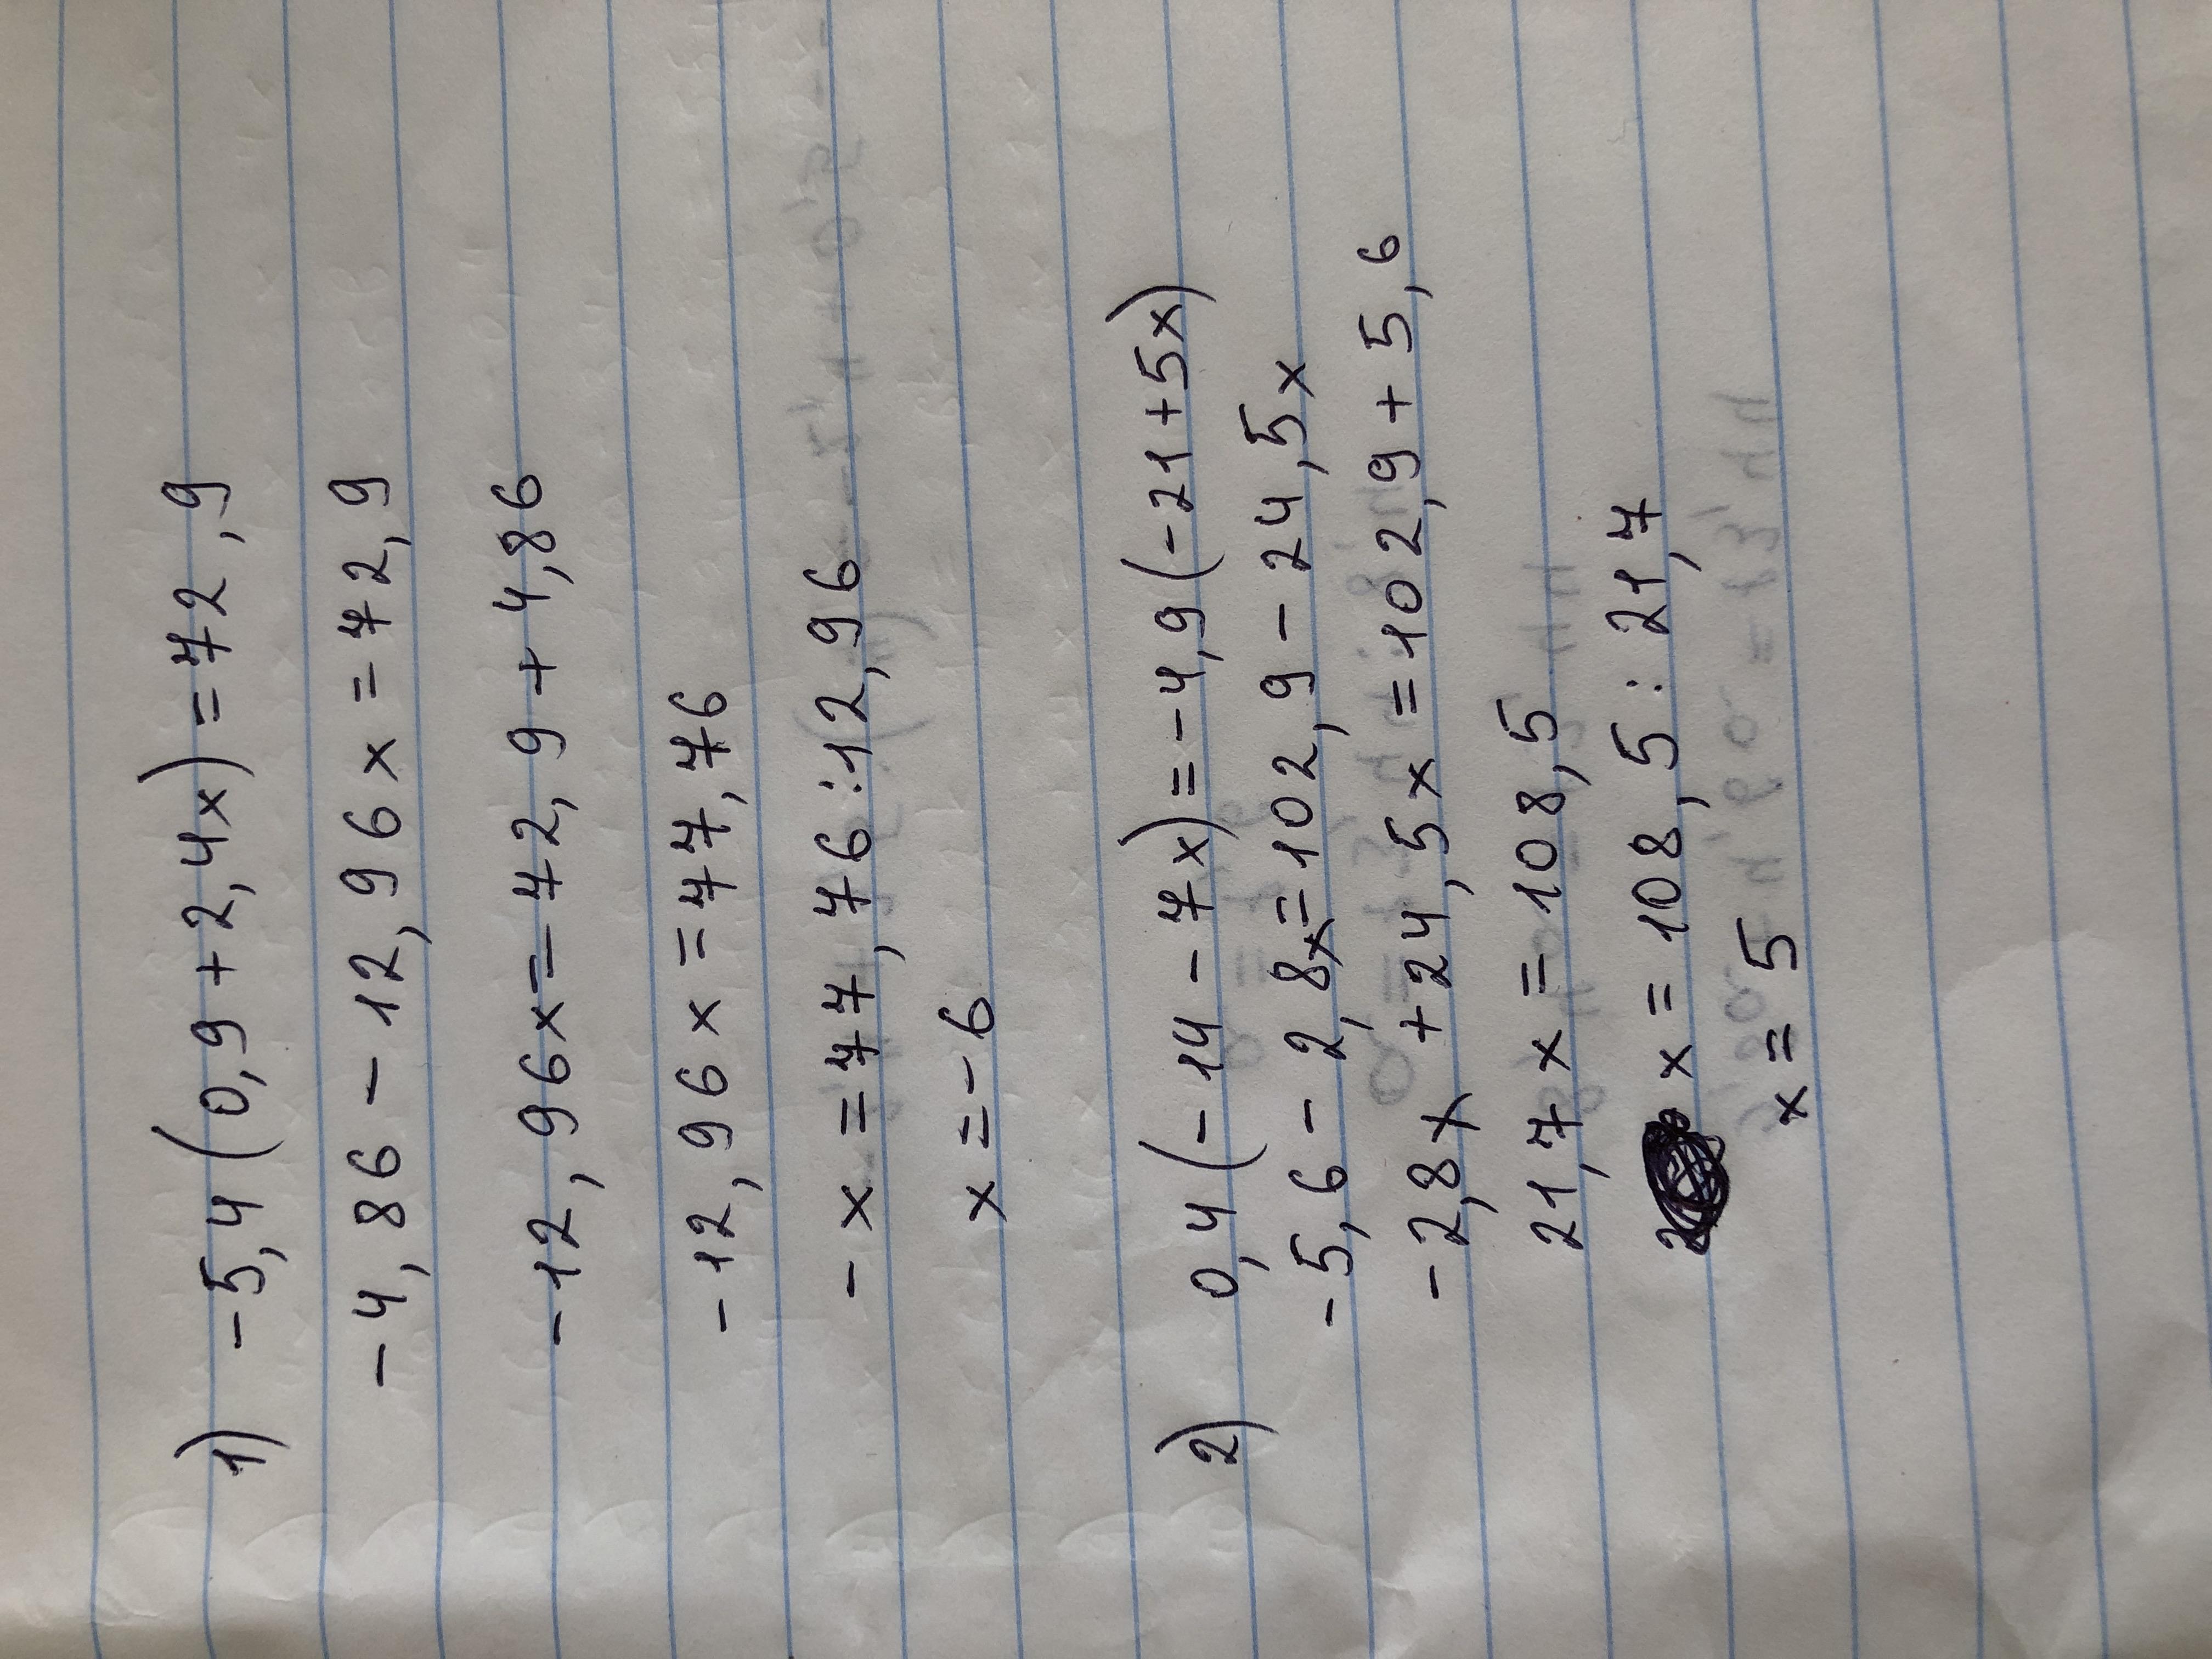 1) -5,4(0,9+2,4x)=72,9
-4,86-12,96x=72,9
-12,96x=72,9+4,86
-12,96x=77,76
-x=77,76:12,96
x=-6
2) 0,4(-14-7x)=-4,9(-21+5x)
-5,6-2,8x=102,9-24,5x
-2,8x+24,5x=102,9+5,6
21,7x=108,5
x=108,5:21,7
x=5